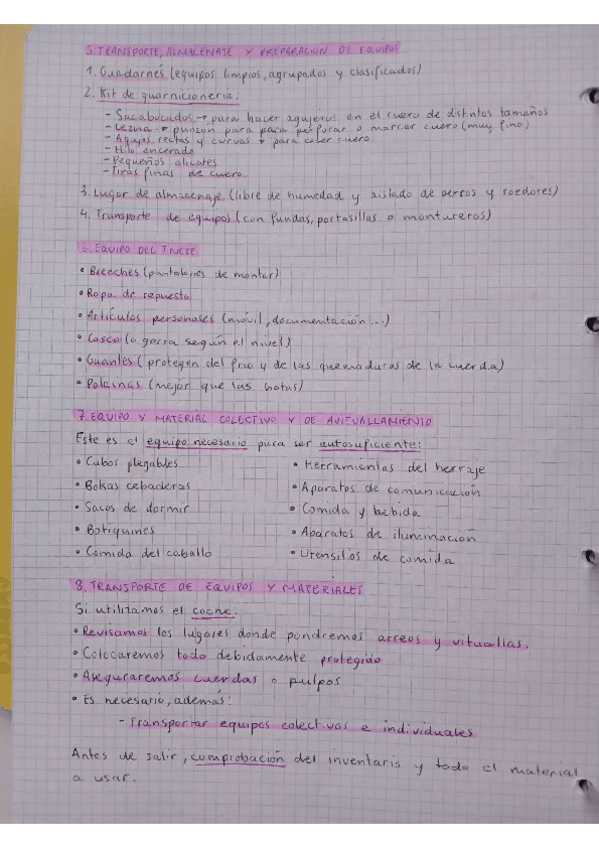 5. TRANSPORTE, ALMACENAJE Y PREPARACIÓN DE EQUIPOS
1. Guadarnés (equipos limpios, agrupados y clasificados)
2. Kit de guarnicionería:
- Sacabocados → para hacer agujeros en el cuero de distintos tamaños
- Lezna → punzón para para perforar o marcar cuero (muy fino)
- Agujas rectas y curvas → para coser cuero
- Hilo encerado
- Pequeños alicates
- Tiras finas de cuero
3. Lugar de almacenaje (libre de humedad y aislado de perros y roedores)
4. Transporte de equipos (con fundas, portasillas o montureros)
6. EQUIPO DEL JINETE
• Breeches (pantalones de montar)
• Ropa de repuesto
• Artículos personales (móvil, documentación...)
• Casco (o gorra según el nivel)
• Guantes (protegen del frío y de las quemaduras de la cuerda)
• Polainas (mejor que las botas)
7. EQUIPO Y MATERIAL COLECTIVO Y DE AVITUALLAMIENTO
Este es el equipo necesario para ser autosuficiente:
• Cubos plegables • Herramientas del herraje
• Bolsas cebaderas • Aparatos de comunicación
• Sacos de dormir • Comida y bebida
• Botiquines • Aparatos de iluminación
• Comida del caballo • Utensilios de comida
8. TRANSPORTE DE EQUIPOS Y MATERIALES
Si utilizamos el coche:
• Revisamos los lugares donde pondremos arreos y vituallas.
• Colocaremos todo debidamente protegido
• Aseguraremos cuerdas o pulpos
• Es necesario, además:
- Transportar equipos colectivos e individuales
Antes de salir, comprobación del inventario y todo el material
a usar.